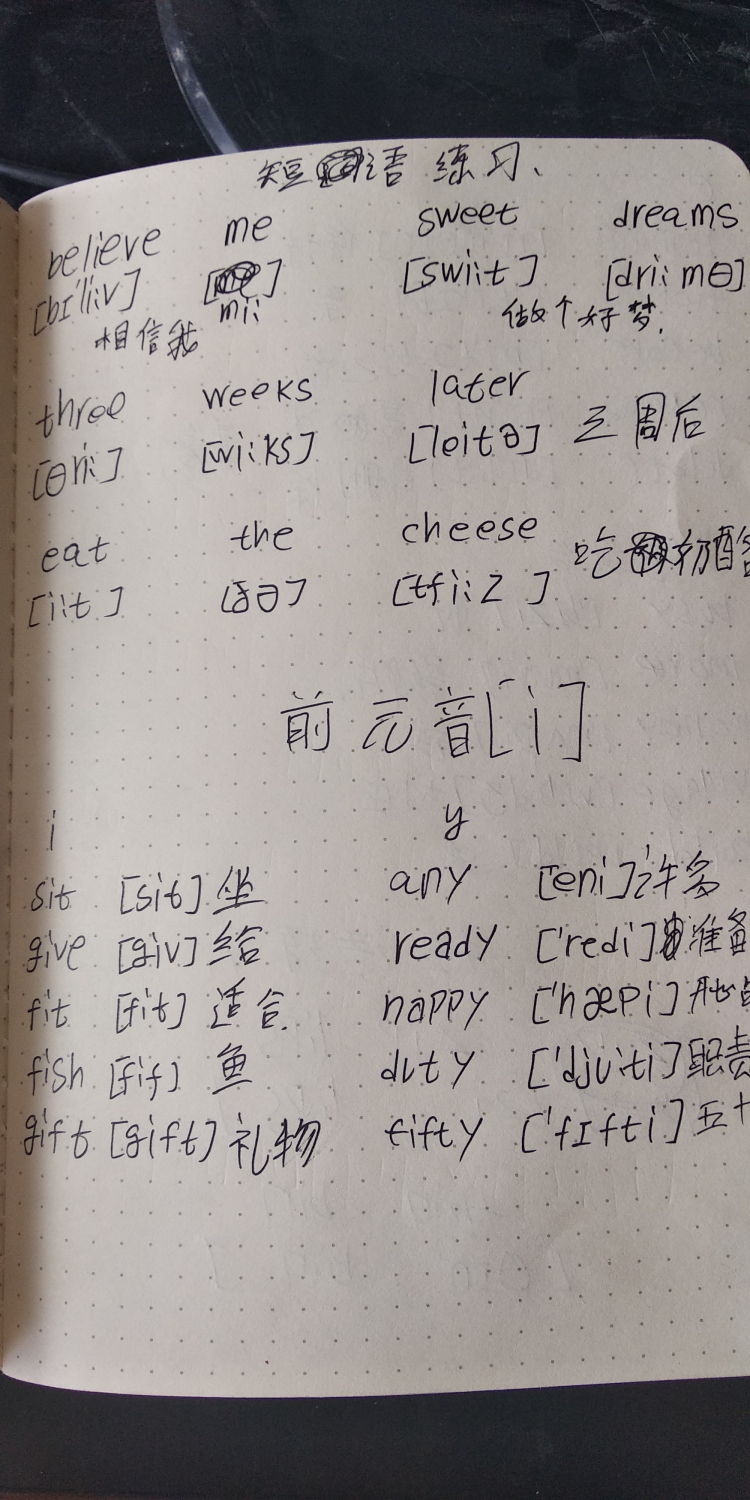 短语 练习、
believe me sweet dreams
[bɪ'li:v] mi: [swi:t] [dri:mθ]
相信我 做个好梦.
three weeks later
[θri:] [wi:ks] [leitə] 三周后
eat the cheese 吃奶酪
[i:t] [ðə] [tʃi:z]
前元音[i]
i y
sit [sit] 坐 any [eni] 许多
give [giv] 给 ready ['redi] 准备
fit [fit] 适合 happy ['hæpi]
fish [fiʃ] 鱼 duty ['dju:ti] 职责
gift [gift] 礼物 fifty ['fɪfti] 五十